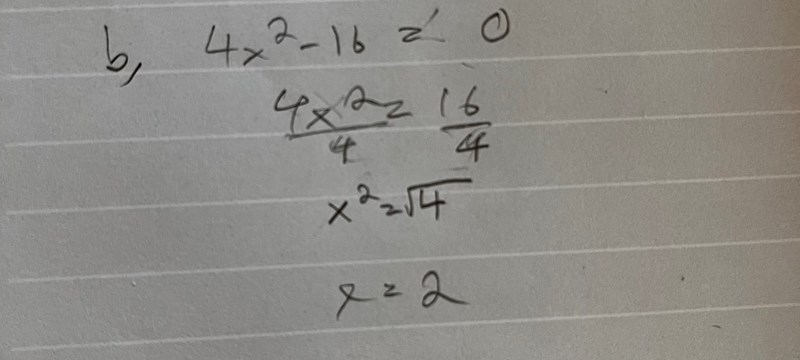 b, 4x² - 16 = 0
4x²/4 = 16/4
x² = √4
x = 2